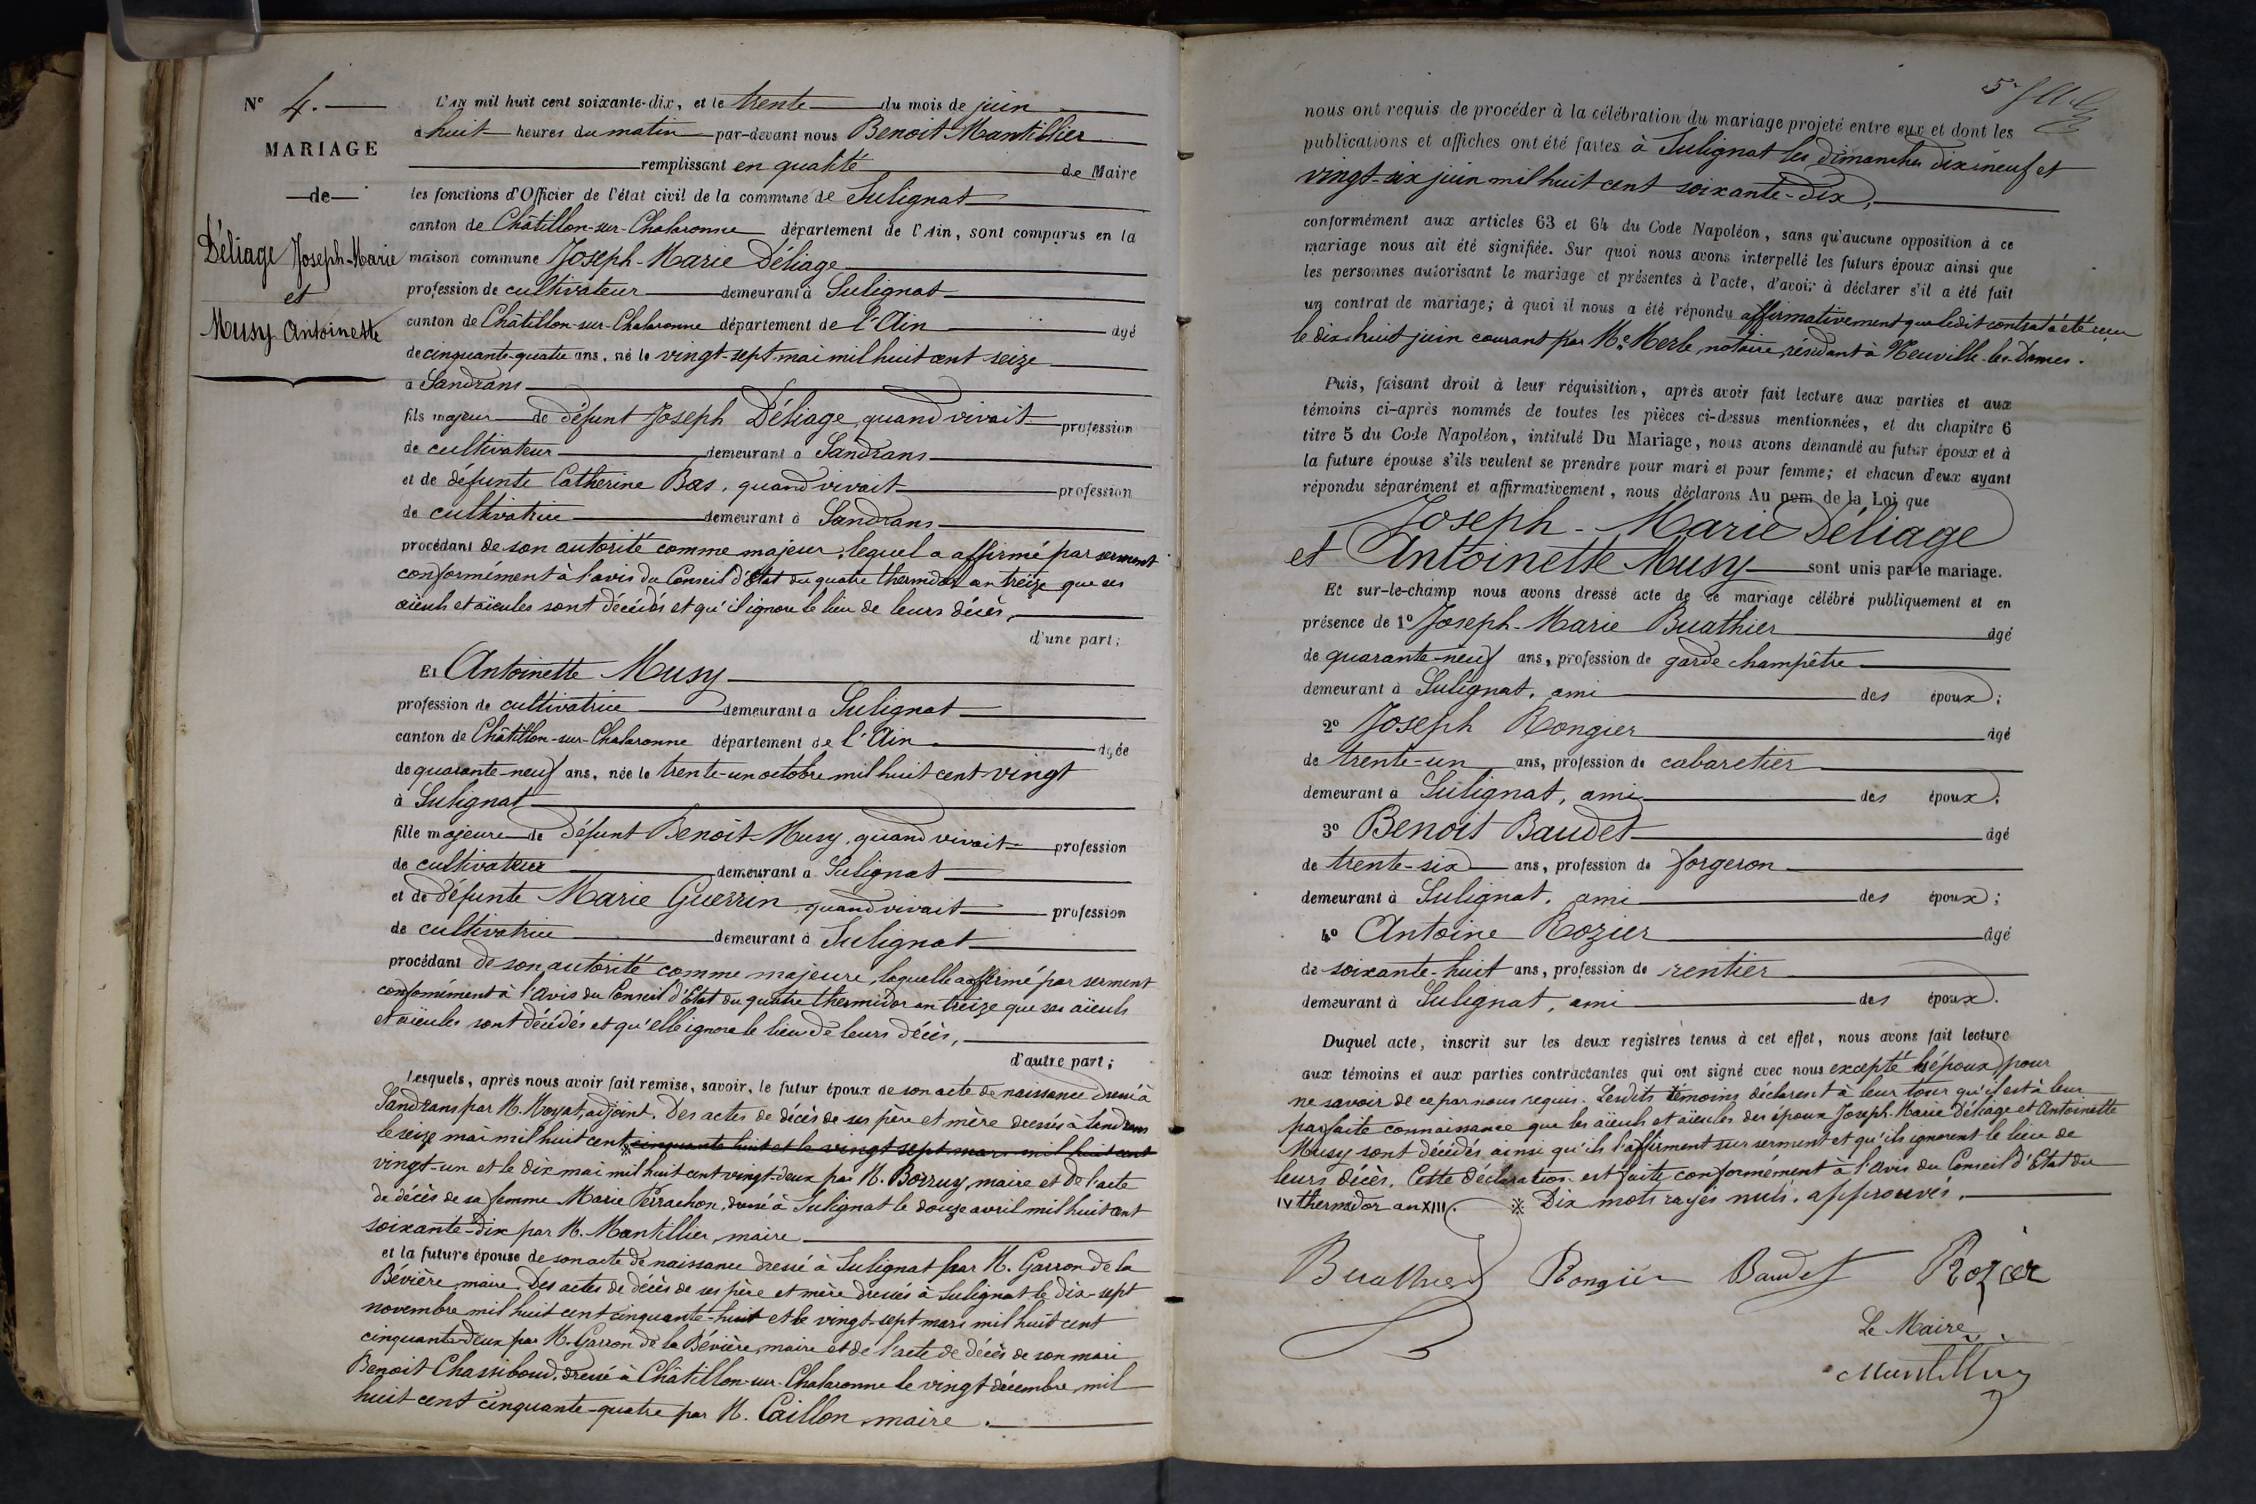 N° 4.
MARIAGE
de
Déliage Joseph-Marie
et
Musy Antoinette
L'AN mil huit cent soixante-dix, et le trente du mois de juin
à huit heures du matin par-devant nous Benoit Mantillier
remplissant en qualité de Maire
les fonctions d'Officier de l'état civil de la commune de Sulignat
canton de Châtillon-sur-Chalaronne département de l'Ain, sont comparus en la
maison commune Joseph-Marie Déliage
profession de cultivateur demeurant à Sulignat
canton de Châtillon-sur-Chalaronne département de l'Ain âgé
de cinquante-quatre ans, né le vingt-sept mai mil huit cent seize
à Sandrans
fils majeur de défunt Joseph Déliage, quand vivait profession
de cultivateur demeurant à Sandrans
et de défunte Catherine Bas, quand vivait profession
de cultivatrice demeurant à Sandrans
procédant de son autorité comme majeur, lequel a affirmé par serment
conformément à l'avis du Conseil d'Etat du quatre thermidor an treize que ses
aïeuls et aïeules sont décédés et qu'il ignore le lieu de leurs décès,
d'une part;
Et Antoinette Musy
profession de cultivatrice demeurant à Sulignat
canton de Châtillon-sur-Chalaronne département de l'Ain âgée
de quarante-neuf ans, née le trente-un octobre mil huit cent vingt
à Sulignat
fille majeure de défunt Benoit Musy, quand vivait profession
de cultivateur demeurant à Sulignat
et de défunte Marie Guerrin, quand vivait profession
de cultivatrice demeurant à Sulignat
procédant de son autorité comme majeure, laquelle a affirmé par serment
conformément à l'Avis du Conseil d'Etat du quatre thermidor an treize que ses aïeuls
et aïeules sont décédés et qu'elle ignore le lieu de leurs décès,
d'autre part;
Lesquels, après nous avoir fait remise, savoir, le futur époux de son acte de naissance dressé à
Sandrans par M. Moyat, adjoint, Des actes de décès de ses père et mère dressés à Sandrans
le seize mai mil huit cent ※ cinquante huit et le vingt sept mars mil huit cent
vingt-un et le dix mai mil huit cent vingt-deux par M. Borruy, maire et de l'acte
de décès de sa femme Marie Perrachon, dressé à Sulignat le douze avril mil huit cent
soixante-dix par M. Mantillier, maire
et la future épouse de son acte de naissance dressé à Sulignat par M. Garron de la
Bévière, maire. Des actes de décès de ses père et mère dressés à Sulignat le dix-sept
novembre mil huit cent cinquante-huit et le vingt-sept mars mil huit cent
cinquante-deux par M. Garron de la Bévière, maire et de l'acte de décès de son mari
Benoit Chassiboud, dressé à Châtillon-sur-Chalaronne le vingt décembre mil
huit cent cinquante-quatre par M. Caillon, maire.
5
nous ont requis de procéder à la célébration du mariage projeté entre eux et dont les
publications et affiches ont été faites à Sulignat les dimanches dix-neuf et
vingt-six juin mil huit cent soixante-dix,
conformément aux articles 63 et 64 du Code Napoléon, sans qu'aucune opposition à ce
mariage nous ait été signifiée. Sur quoi nous avons interpellé les futurs époux ainsi que
les personnes autorisant le mariage et présentes à l'acte, d'avoir à déclarer s'il a été fait
un contrat de mariage; à quoi il nous a été répondu affirmativement que ledit contrat a été reçu
le dix-huit juin courant par Me Merle, notaire, résidant à Neuville-les-Dames.
Puis, faisant droit à leur réquisition, après avoir fait lecture aux parties et aux
témoins ci-après nommés de toutes les pièces ci-dessus mentionnées, et du chapitre 6
titre 5 du Code Napoléon, intitulé Du Mariage, nous avons demandé au futur époux et à
la future épouse s'ils veulent se prendre pour mari et pour femme; et chacun d'eux ayant
répondu séparément et affirmativement, nous déclarons Au nom de la Loi que
Joseph-Marie Déliage
et Antoinette Musy sont unis par le mariage.
Et sur-le-champ nous avons dressé acte de ce mariage célébré publiquement et en
présence de 1° Joseph-Marie Buathier âgé
de quarante-neuf ans, profession de garde champêtre
demeurant à Sulignat, ami des époux;
2° Joseph Rongier âgé
de trente-un ans, profession de cabaretier
demeurant à Sulignat, ami des époux;
3° Benoit Baudet âgé
de trente-six ans, profession de forgeron
demeurant à Sulignat, ami des époux;
4° Antoine Rozier âgé
de soixante-huit ans, profession de rentier
demeurant à Sulignat, ami des époux.
Duquel acte, inscrit sur les deux registres tenus à cet effet, nous avons fait lecture
aux témoins et aux parties contractantes qui ont signé avec nous excepté les époux pour
ne savoir de ce par nous requis. Lesdits témoins déclarent à leur tour qu'il est à leur
parfaite connaissance que les aïeuls et aïeules des époux Joseph-Marie Déliage et Antoinette
Musy sont décédés ainsi qu'ils l'affirment sur serment et qu'ils ignorent le lieu de
leurs décès. Cette déclaration est faite conformément à l'Avis du Conseil d'Etat du
IV thermidor an XIII. ※ Dix mots rayés nuls, approuvés.
Buathier Rongier Baudet Rozier
Le Maire
Mantillier